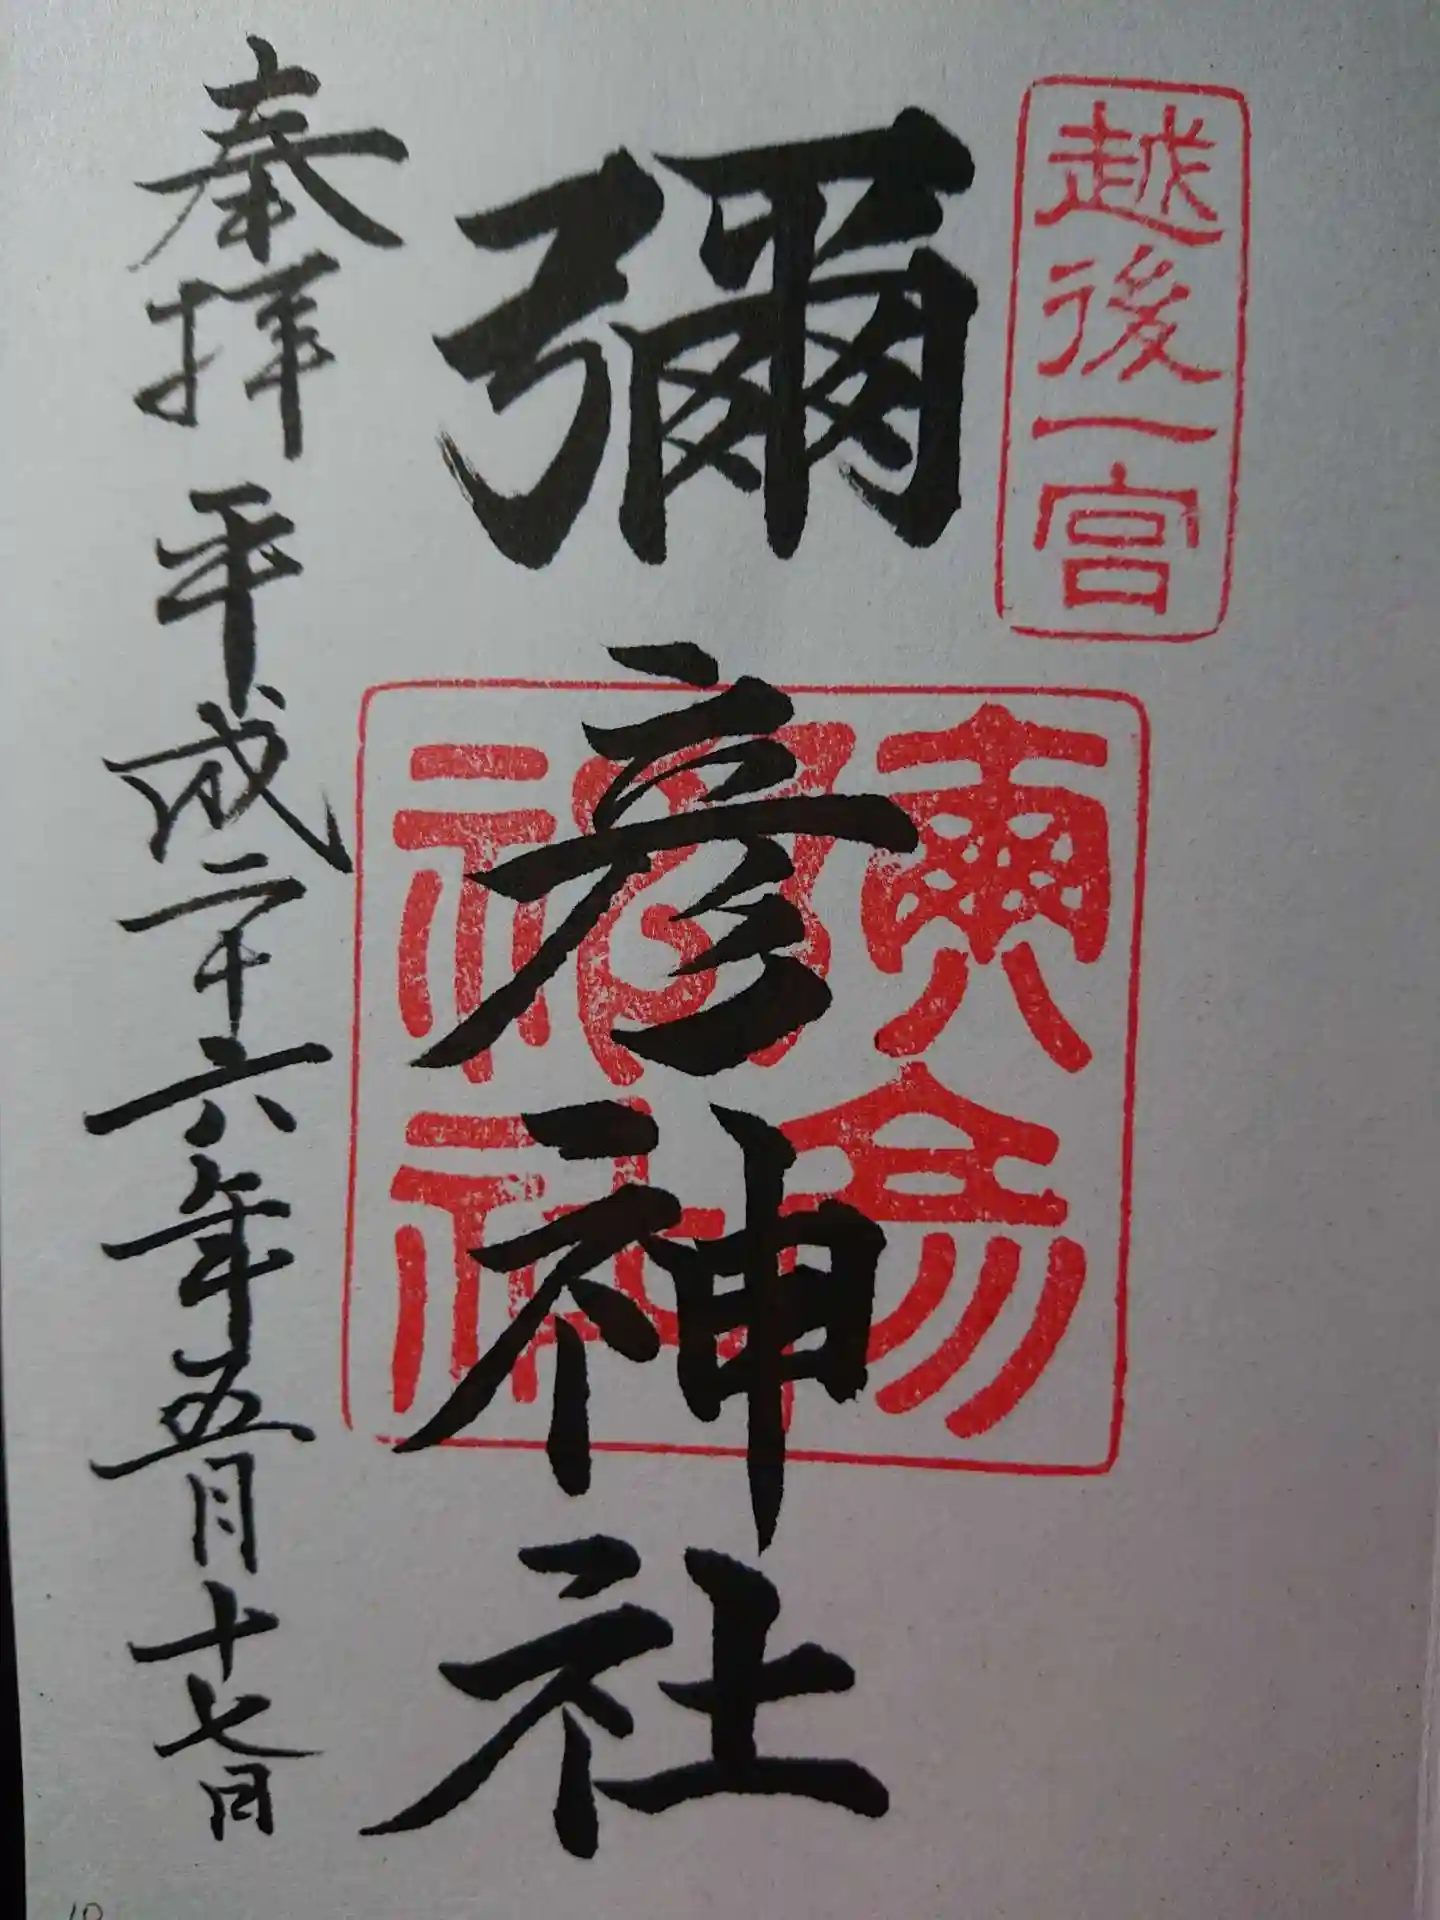 越後一宮
彌彦神社
奉拝 平成二十六年五月十七日